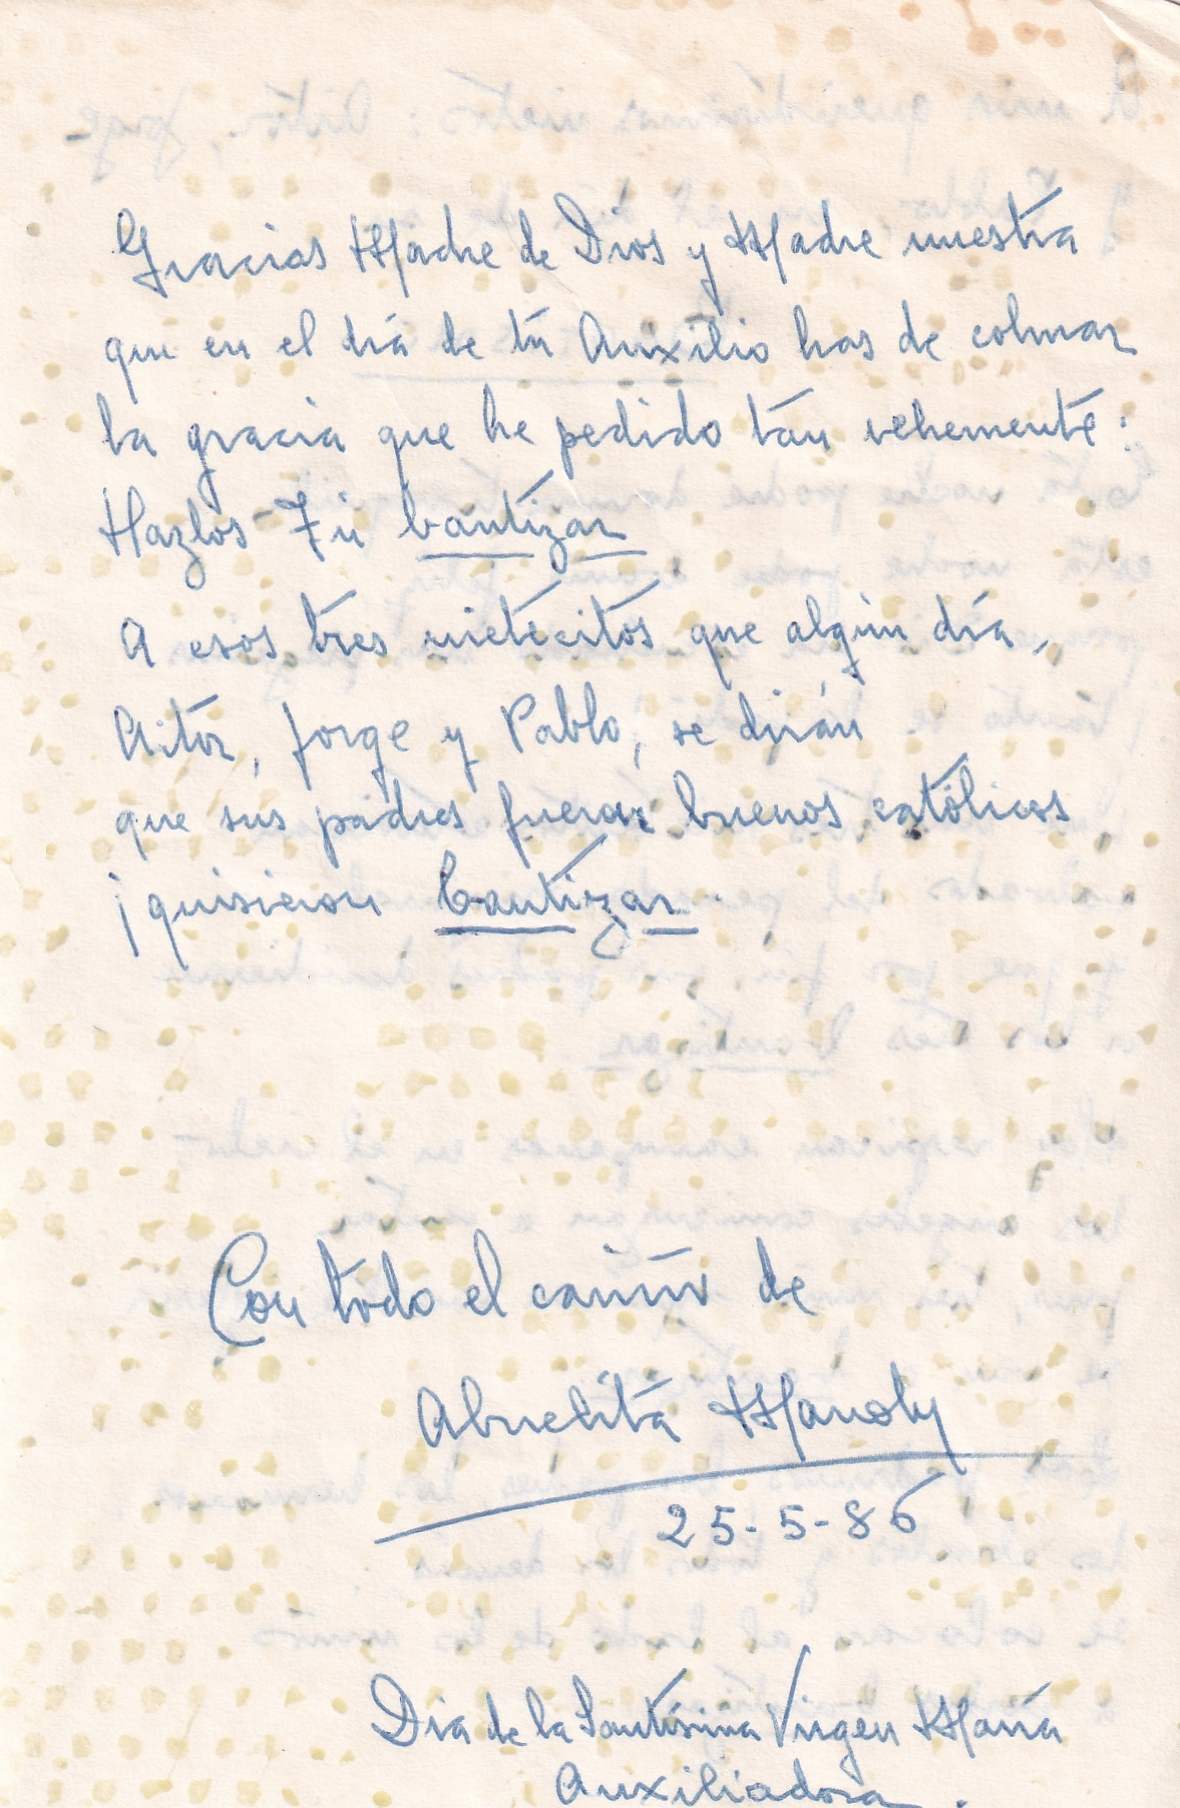 Gracias Madre de Dios y Madre nuestra
que en el día de tú Auxilio has de colmar
la gracia que he pedido tan vehemente:
Hazlos Tú bautizar
A esos tres nietecitos que algún día,
Aitor, Jorge y Pablo, se dirán
que sus padres fueron buenos católicos
¡quisieron bautizar
Con todo el cariño de
Abuelita Manoly
25-5-86
Dia de la Santísima Virgen María
Auxiliadora.